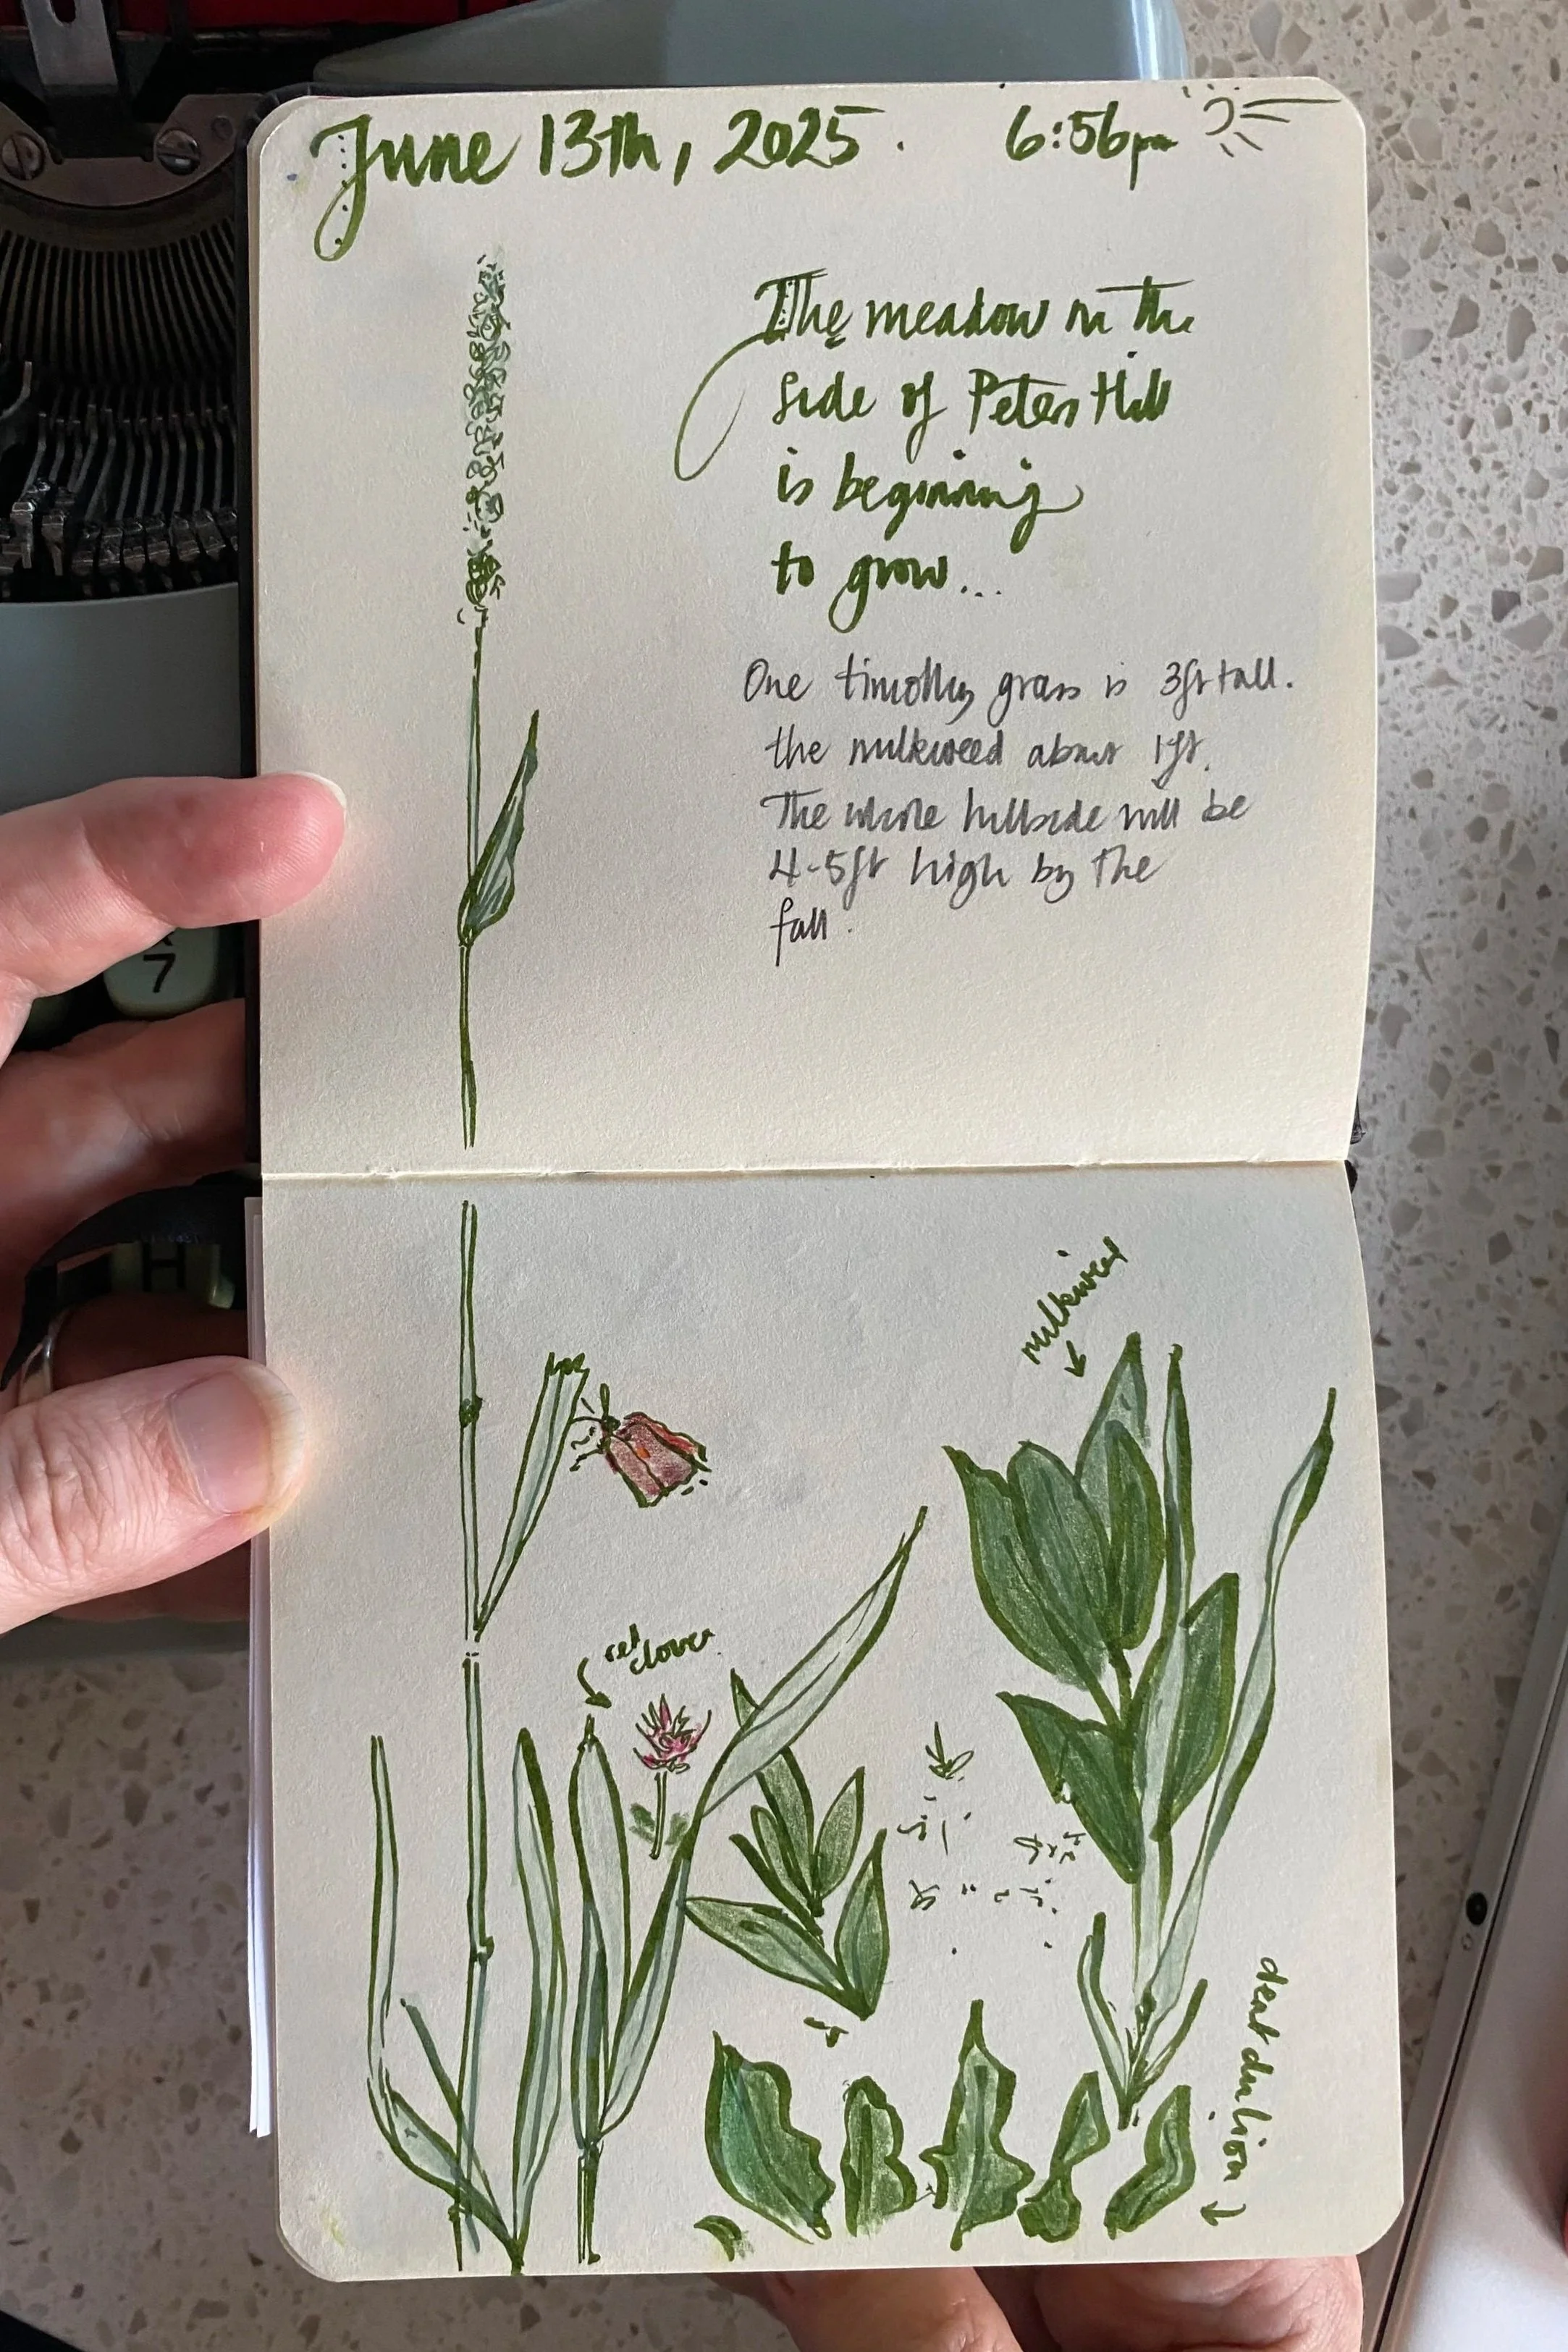 June 13th, 2025. 6:56pm
The meadow on the
side of Peters Hill
is beginning
to grow...
One timothy grass is 3ft tall.
the milkweed about 1ft.
The whole hillside will be
4-5ft high by the
fall.
7
H
milkweed
red
clover
dent du lion